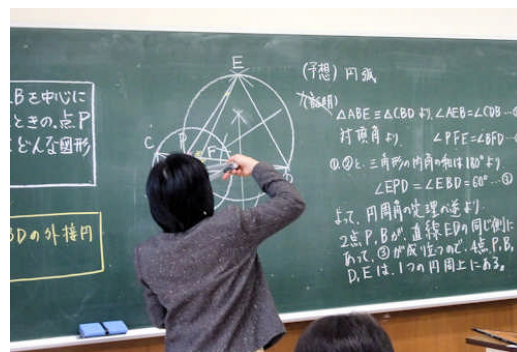 Bを中心に
ときの、点P
どんな図形
BDの外接円
E
C
D
F
(予想) 円弧
(証明)
△ABE≡△CBDより、∠AEB=∠CDB…
対頂角より ∠PFE=∠BFD…
①,②と、三角形の内角の和は180°より
∠EPD=∠EBD=60°…③
よって、円周角の定理の逆より
2点P,Bが、直線EDの同じ側に
あって、③が成り立つので、4点P,B,
D,Eは、1つの円周上にある。